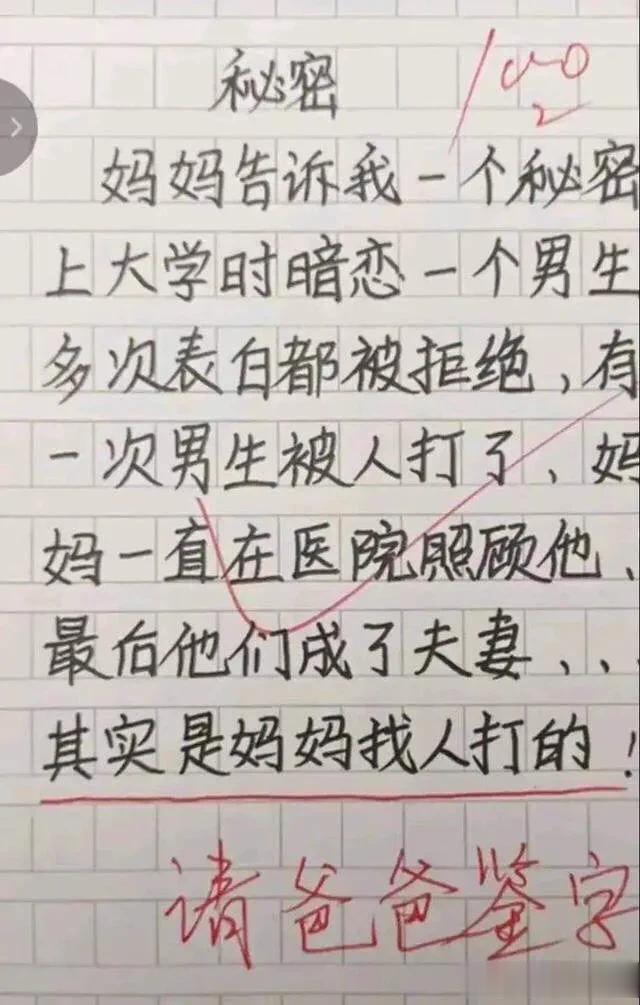 秘密
100
2
妈妈告诉我一个秘密
上大学时暗恋一个男生
多次表白都被拒绝、有
一次男生被人打了、妈
妈一直在医院照顾他、
最后他们成了夫妻、、
其实是妈妈找人打的！
请爸爸鉴字